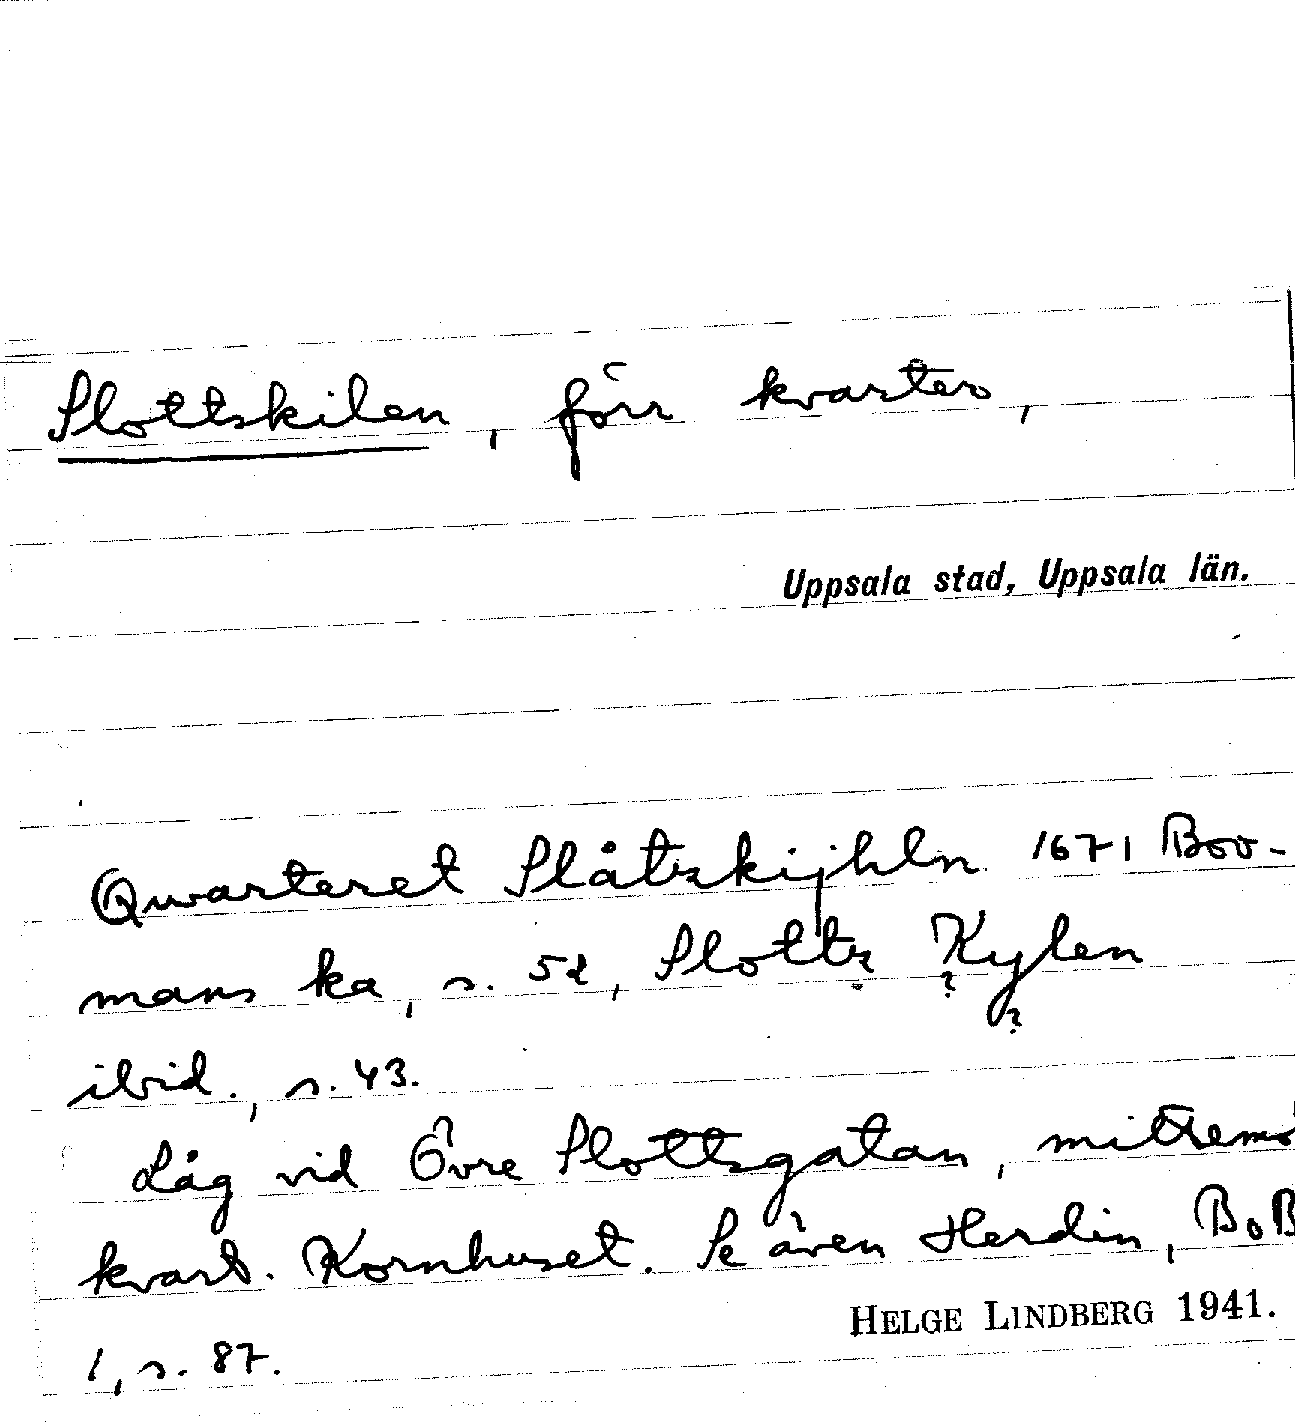 Slottskilen, förr kvarter,
Uppsala stad, Uppsala län.
Qwarteret Slåtzkijhln 1671 Boo-
mans ka, s. 52, Slottz Kylen
? ?
ibid., s. 43.
Låg vid Övre Slottsgatan, mittemo
kvart. Kornhuset. Se även Herdin, BoB
HELGE LINDBERG 1941.
1, s. 87.